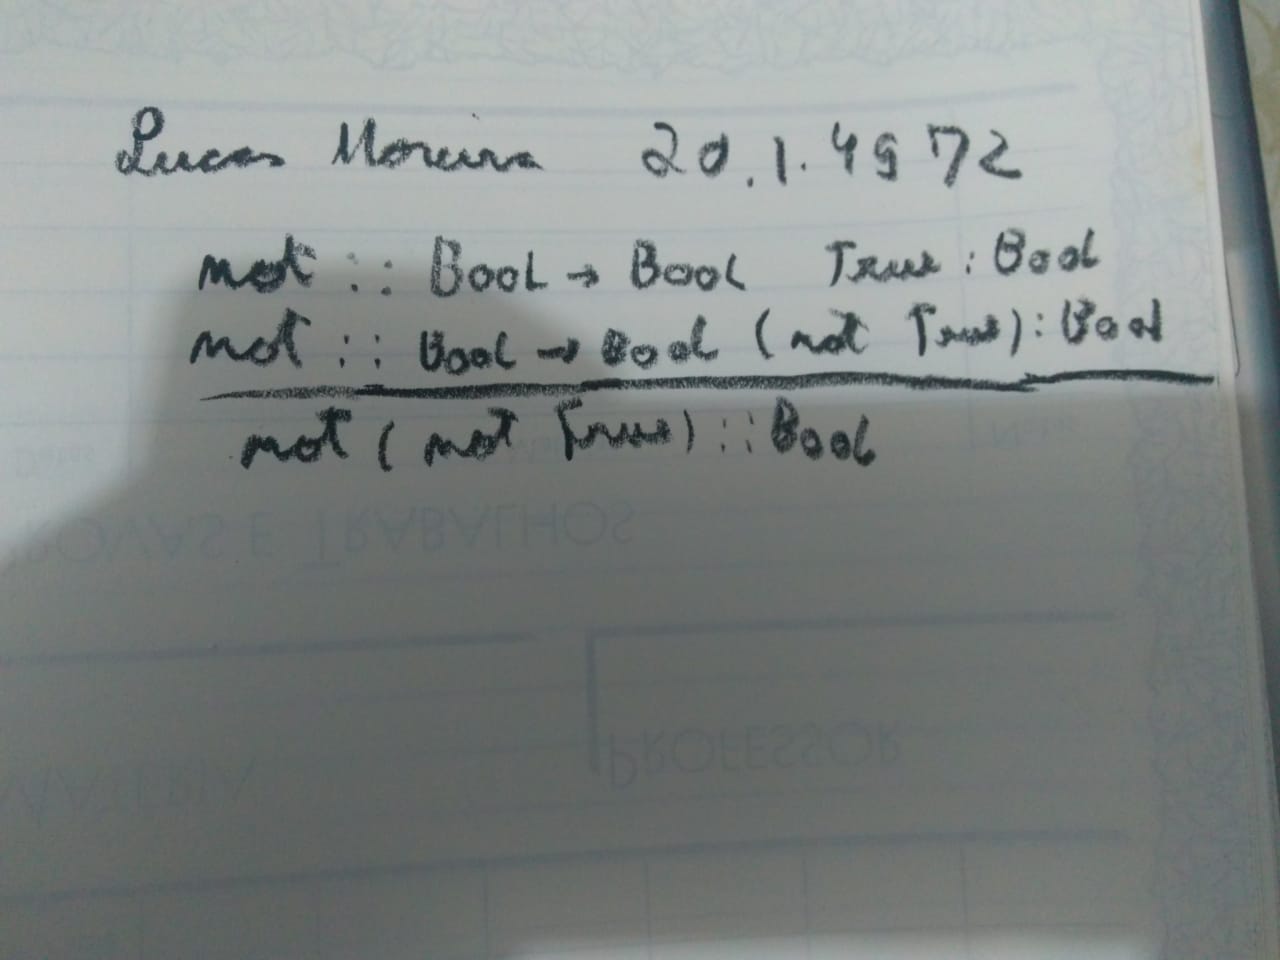 Lucas Moreira 20.1.4972
not :: Bool → Bool True : Bool
not :: Bool → Bool (not True) : Bool
not ( not True) :: Bool
PROVAS E TRABALHOS
PROFESSOR
MATÉRIA